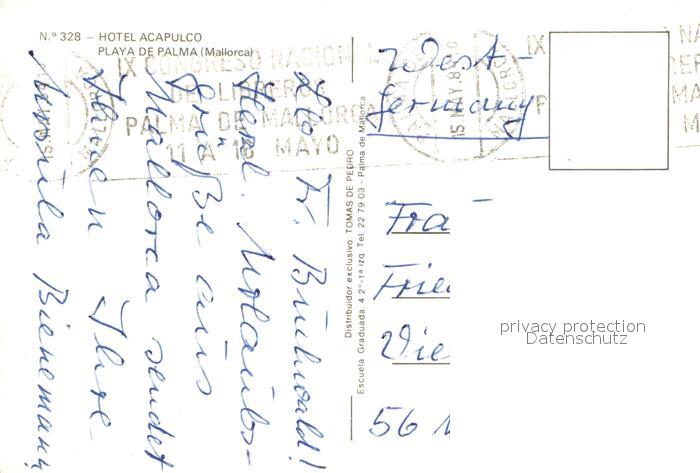 N.º 328 — HOTEL ACAPULCO
PLAYA DE PALMA (Mallorca)
IX CONGRESO NACIONAL
DE LIBREROS
PALMA DE MALLORCA
11 A 16 MAYO
15 MAY 8
West-
Germany
Fra
Frie
Vie
56
Lb. Fr. Buchwald!
Herzl. Urlaubs-
grüße aus
Mallorca sendet
Ihnen Ihre
Bienemann
Distribuidor exclusivo: TOMAS DE PEDRO
Escuela Graduada, 4 2º-1ª izq. Tel. 22 79 03 - Palma de Mallorca
privacy protection
Datenschutz